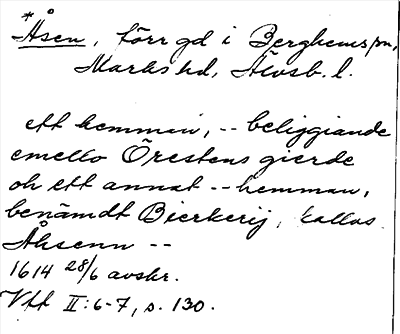 *Åsen, förr gd i Berghems sn,
Marks hd, Älvsb. l.
ett hemman, -- beliggiande
emello Örestens gierde
oh ett annat -- hemman,
benämdt Bierkerij, kallas
Åhsenn --
1614 28/6 avskr.
Vtt II: 6-7, s. 130.